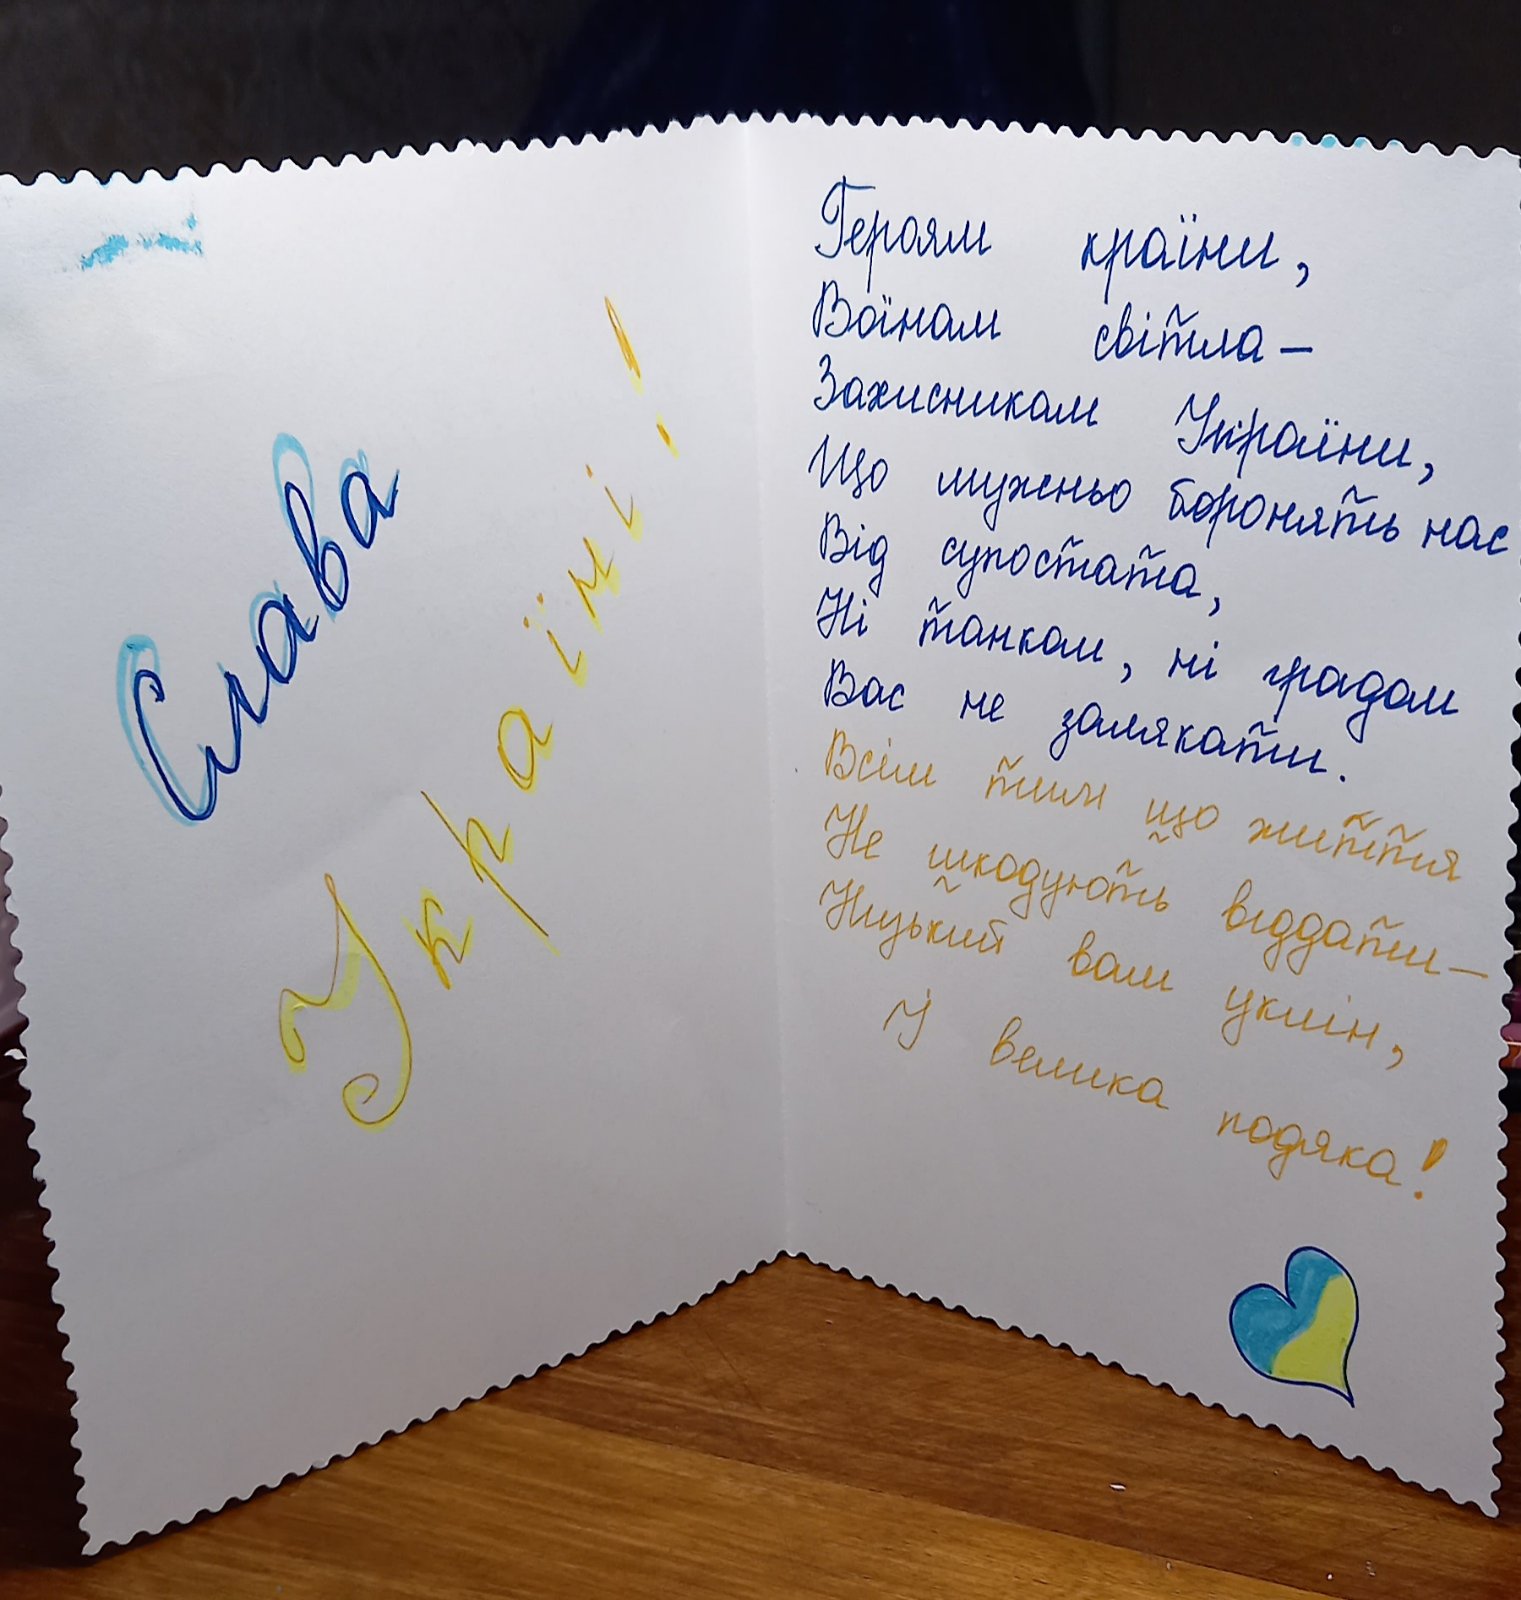 Слава
Україні!
Героям країни,
Воїнам світла –
Захисникам України,
Що мужньо боронять нас
Від супостата,
Ні танкам, ні градам
Вас не залякати.
Всім тим що життя
Не шкодують віддати –
Низький вам уклін,
І велика подяка!